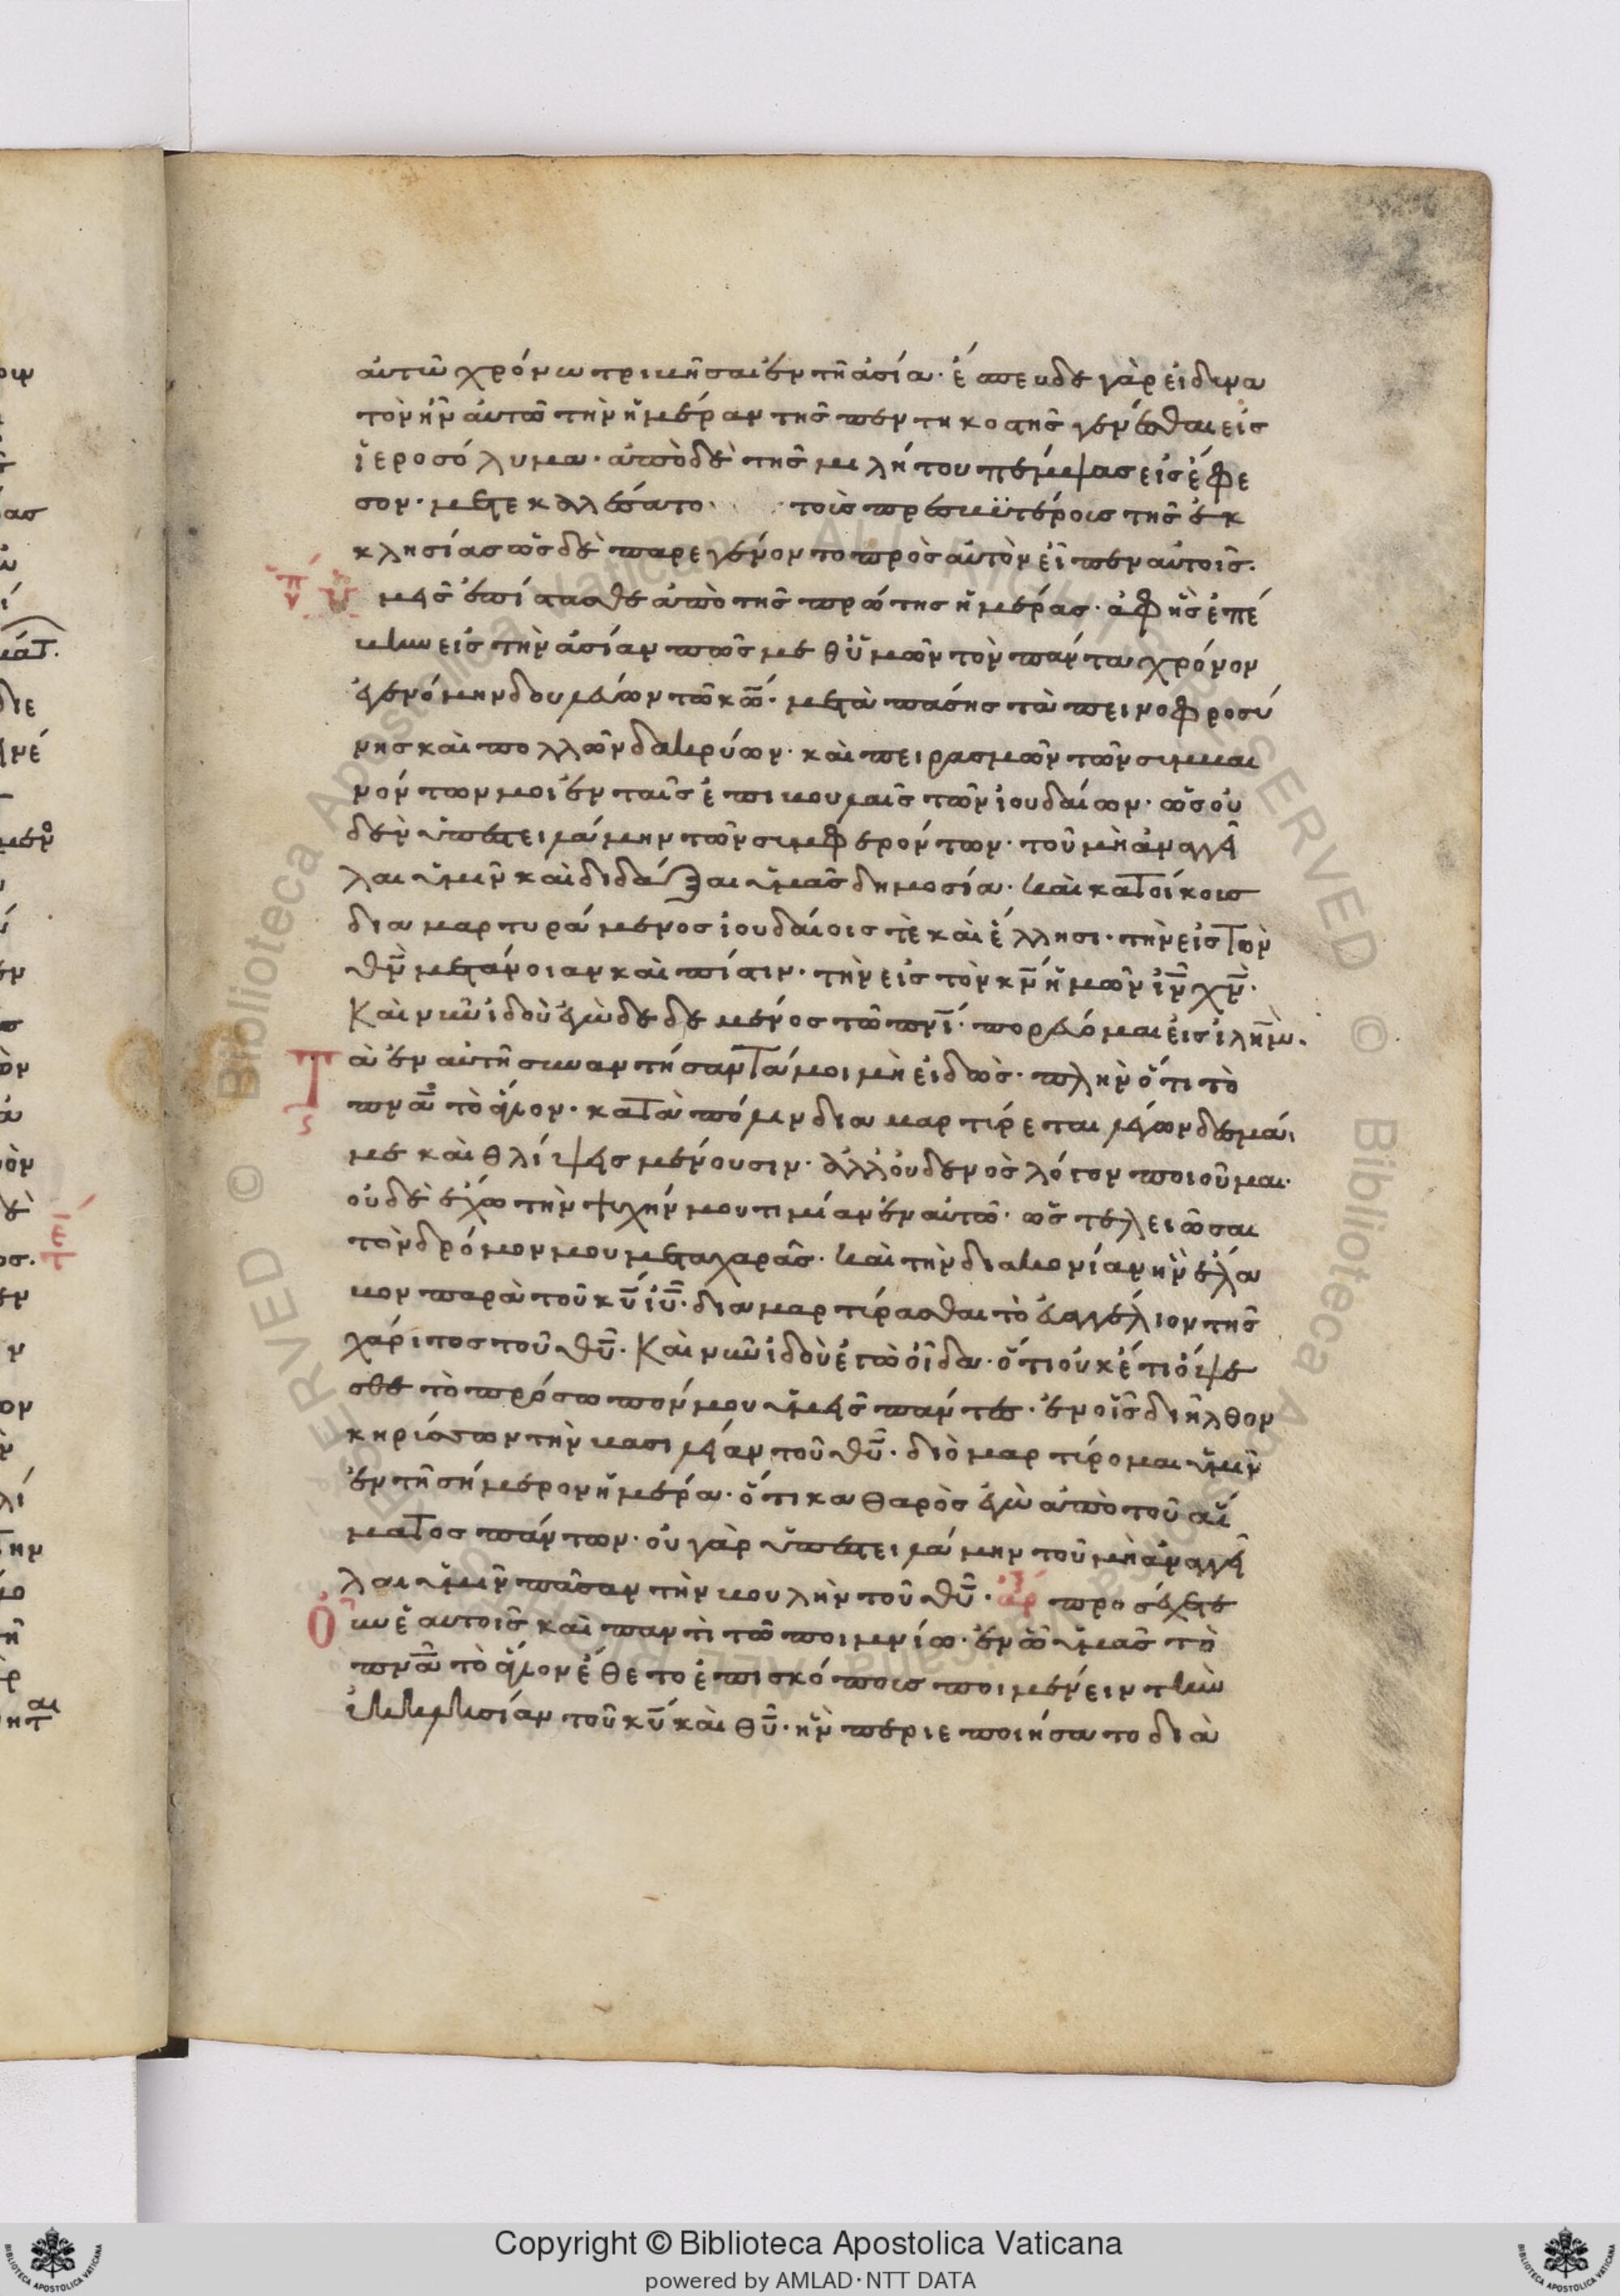 αὐτῶ χρόνω τριβῆσαι ἐν τῆ ἀσία· ἔσπευδε γὰρ εἰ δυνα
τὸν ἦν αὐτῶ τὴν ἡμέραν τῆς πεντηκοστῆς γενέσθαι εἰς
ἱεροσόλυμα· ἀπὸ δὲ τῆς μιλήτου πέμψας εἰς ἔφε
σον· μετεκαλέσατο· τοὺς πρεσβϋτέρους τῆς ἐκ
κλησίας ὡς δὲ παρεγένοντο πρὸς αὐτὸν εἶπεν αὐτοῖς·
ὑμεῖς ἐπίστασθε ἀπὸ τῆς πρώτης ἡμέρας· ἀφ ἧς ἐπέ
βην εἰς τὴν ἀσίαν πῶς μεθ ὑμῶν τὸν πάντα χρόνον
ἐγενόμην δουλεύων τῶ κω̅· μετὰ πάσης ταπεινοφροσύ
νης καὶ πολλῶν δακρύων· καὶ πειρασμῶν τῶν συμβαι
νόντων μοι ἐν ταῖς ἐπιβουλαῖς τῶν ἰουδαίων· ὡς οὐ
δὲν ὑπεστειλάμην τῶν συμφερόντων· τοῦ μὴ ἀναγγεῖ
λαι ὑμῖν καὶ διδάξαι ὑμᾶς δημοσία· καὶ κατοίκους
διαμαρτυράμενος ἰουδαίοις τὲ καὶ ἕλλησι· τὴν εἰς τὸν
θν̅ μετάνοιαν καὶ πίστιν· τὴν εἰς τὸν κν̅ ἡμῶν ιν̅ χν̅·
Καὶ νῦν ἰδοὺ ἐγὼ δεδεμένος τῶ πνι̅· πορεύομαι εἰς ιλημ̅·
Τὰ ἐν αὐτῆ συναντήσαντά μοι μὴ εἰδώς· πλὴν ὅτι τὸ
πνα̅ τὸ ἅγιον· κατὰ πόλιν διαμαρτίρεται λέγων δεσμά
με καὶ θλίψεις μένουσιν· ἀλλ οὐδενὸς λόγον ποιοῦμαι·
οὐδὲ ἔχω τὴν ψυχήν μου τιμίαν ἐν αὐτῶ· ὡς τελειῶσαι
τὸν δρόμον μου μετα χαρᾶς· καὶ τὴν διακονίαν ἣν ἔλα
βον παρὰ τοῦ κυ̅ ιυ̅· διαμαρτίρασθαι τὸ εὐαγγέλιον τῆς
χάριτος τοῦ θυ̅· Καὶ νῦν ἰδοὺ ἐγὼ οἶδα· ὅτι οὐκέτι ὄψε
σθε τὸ πρόσωπόν μου ὑμεῖς πάντες· ἐν οἷς διῆλθον
κηρύσσων τὴν βασιλείαν τοῦ θυ̅· διὸ μαρτίρομαι ὑμῖν
ἐν τῆ σήμερον ἡμέρα· ὅτι καθαρὸς ἐγὼ ἀπὸ τοῦ αἵ
ματος πάντων· οὐ γὰρ ὑπεστειλάμην τοῦ μὴ ἀναγγεῖ
λαι ὑμῖν πᾶσαν τὴν βουλὴν τοῦ θυ̅· αρ προσέχετε
οὖν ἑαυτοῖς καὶ παντὶ τῶ ποιμνίω· ἐν ὧ ὑμᾶς τὸ
πνα̅ τὸ ἅγιον ἔθετο ἐπισκόπους ποιμένειν τὴν
ἐκκλησίαν τοῦ κυ̅ καὶ θυ̅· ἣν περιεποιήσατο διὰ